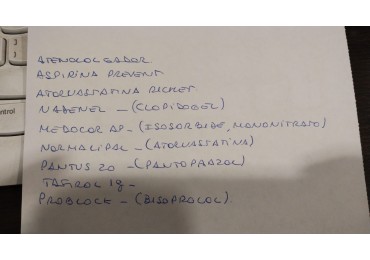 ATENOLOL GADOR
ASPIRINA PREVENT
ATORVASTATINA RICHET
NABENEL - (CLOPIDOGEL)
MEDOCOR AP - (ISOSORBIDE, MONONITRATO)
NORMALIPAL - (ATORVASTATINA)
PANTUS 20 - (PANTOPRAZOL)
TAFIROL 1g -
PROBLOCK - (BISOPROLOL)
control